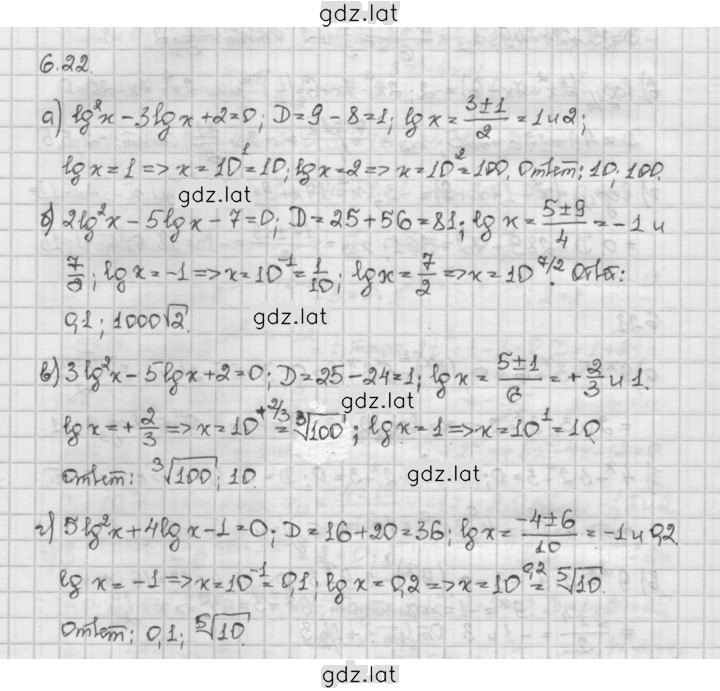 gdz.lat
6.22.
а) lg²x - 3lg x + 2 = 0; D = 9 - 8 = 1; lg x = (3±1)/2 = 1 и 2;
lg x = 1 => x = 10¹ = 10; lg x = 2 => x = 10² = 100. Ответ: 10; 100.
gdz.lat
б) 2lg²x - 5lg x - 7 = 0; D = 25 + 56 = 81; lg x = (5±9)/4 = -1 и
7/2; lg x = -1 => x = 10⁻¹ = 1/10; lg x = 7/2 => x = 10^(7/2). Ответ:
0,1; 1000√2.
gdz.lat
в) 3lg²x - 5lg x + 2 = 0; D = 25 - 24 = 1; lg x = (5±1)/6 = +2/3 и 1.
gdz.lat
lg x = +2/3 => x = 10^(+2/3) = ∛100; lg x = 1 => x = 10¹ = 10.
Ответ: ∛100; 10.
gdz.lat
г) 5lg²x + 4lg x - 1 = 0; D = 16 + 20 = 36; lg x = (-4±6)/10 = -1 и 0,2.
lg x = -1 => x = 10⁻¹ = 0,1; lg x = 0,2 => x = 10^(0,2) = ⁵√10.
Ответ: 0,1; ⁵√10.
gdz.lat
gdz.lat